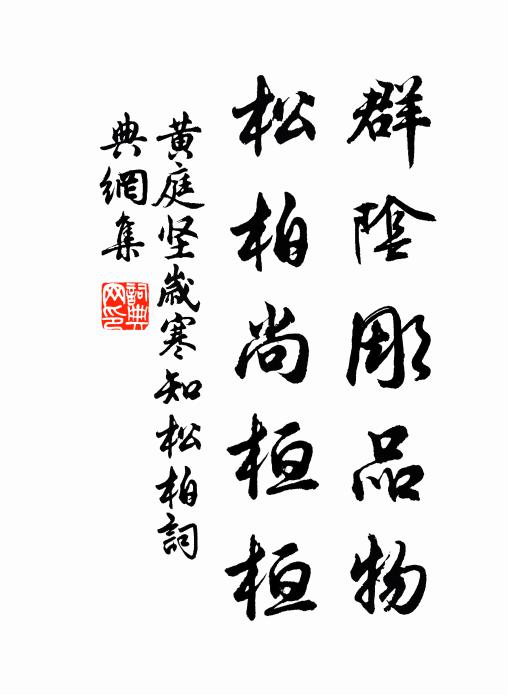 群陰彫品物
松柏尚桓桓
黄庭坚歲寒知松柏詞
典網集
詞典網印